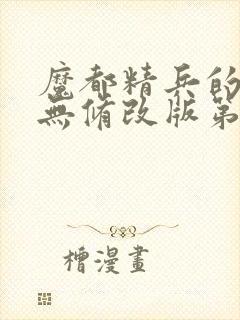 魔都精兵的
無修改版第
檀漫畫